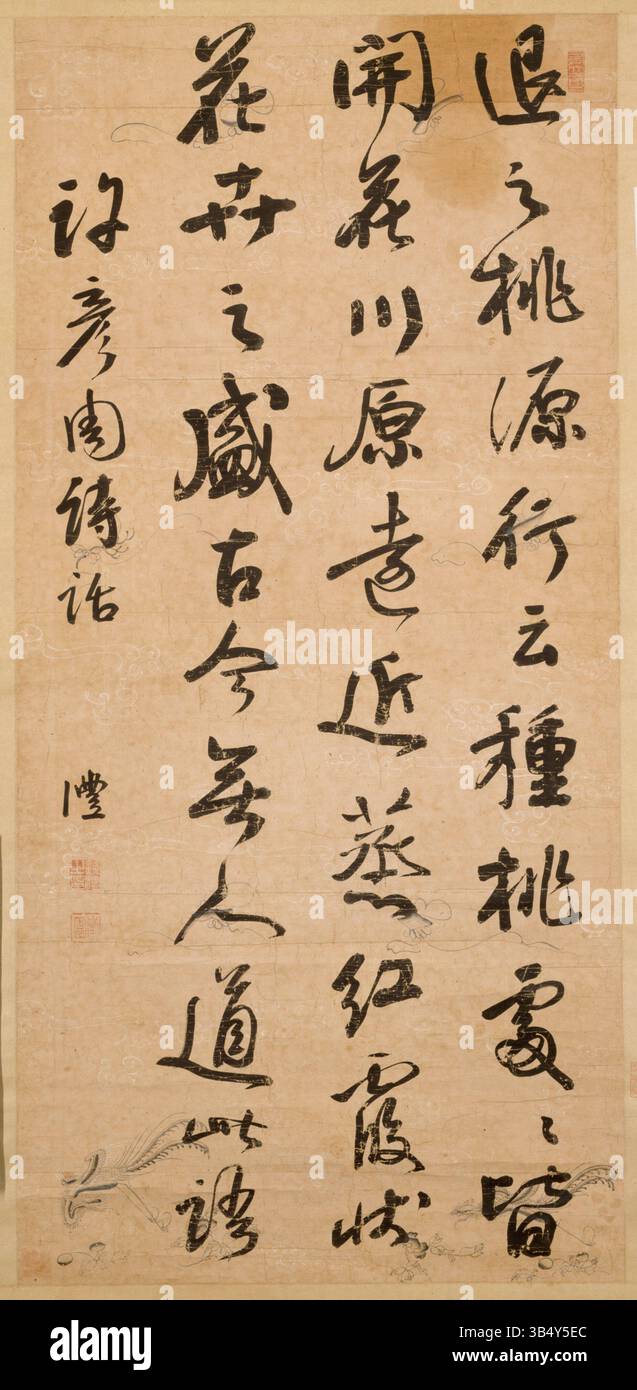 退之桃源行云種桃處〻皆
開花川原遠近蒸紅霞狀
花卉之盛古今無人道此語
許彦周詩話
灃
alamy
Image ID: 3B4Y5EC
www.alamy.com